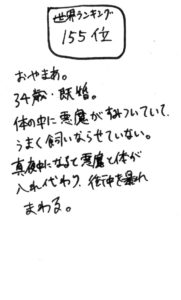 世界ランキング
155位
おやまあ。
34歳・既婚。
体の中に悪魔がすみついていて、
うまく飼いならせていない。
真夜中になると悪魔と体が
入れ代わり、街中を暴れ
まわる。